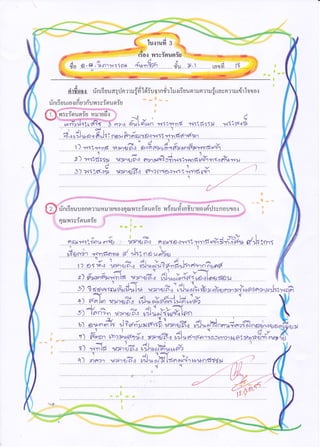 ใบงานที่ 3
เรื่อง พระรัตนตรัย
ชื่อ ด.ญ. วิภาพรรณ ชั้น ม.1 เลขที่ 15
คำชี้แจง นักเรียนสรุปความรู้ที่ได้รับจากชั่วโมงเรียนตามความรู้และความเข้าใจของ
นักเรียนเองเกี่ยวกับพระรัตนตรัย
1 พระรัตนตรัย หมายถึง
แก้วประเสริฐ 3 ดวง อันได้แก่ พระพุทธ พระธรรม พระสงฆ์
ซึ่งเป็นองค์ประกอบสำคัญของพระพุทธศาสนา
1) พระพุทธ หมายถึง องค์สมเด็จสัมมาสัมพุทธเจ้า
2) พระธรรม หมายถึง
3) พระสงฆ์ หมายถึง สาวกของพระพุทธเจ้า
2 นักเรียนบอกความหมายของคุณพระรัตนตรัย พร้อมทั้งอธิบายองค์ประกอบของ
คุณพระรัตนตรัย
คุณพระรัตนตรัย หมายถึง คุณของพระพุทธเจ้ามีทั้งสิ้น 9 ประการ
เรียกว่า พุทธคุณ 9 ประกอบด้วย
1) อรหํ หมายถึง เป็นผู้บริสุทธิ์ปราศจากกิเลส
2) สัมมาสัมพุทโธ หมายถึง เป็นผู้ตรัสรู้เองโดยชอบ
3) วิชชาจรณสัมปันโน หมายถึง เป็นผู้เพียบพร้อมด้วยความรู้และความประพฤติ
4) สุคโต หมายถึง เป็นผู้เสด็จไปดีแล้ว
5) โลกวิทู หมายถึง เป็นผู้รู้แจ้งโลก
6) อนุตตโร ปุริสทัมมสารถิ หมายถึง เป็นผู้ฝึกคนที่ควรฝึกอย่างยอดเยี่ยม
7) สัตถา เทวมนุสสานัง หมายถึง เป็นศาสดาของเทวดาและมนุษย์ทั้งหลาย
8) พุทโธ หมายถึง เป็นผู้ตื่นแล้ว
9) ภควา หมายถึง เป็นผู้มีโชค